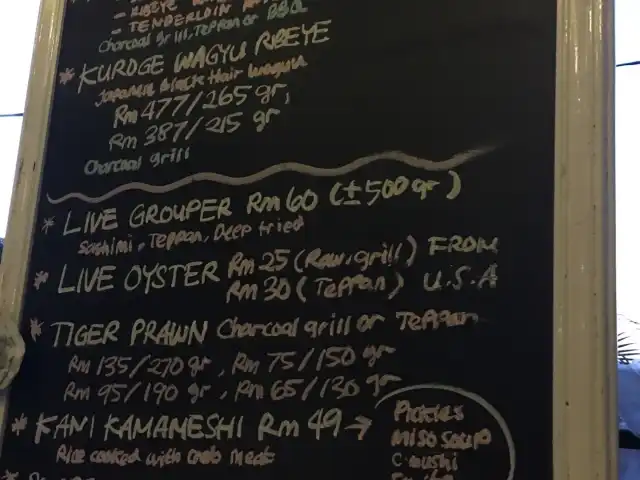 - RIBEYE
- TENDERLOIN
Charcoal grill, Teppan or BBQ
* KUROGE WAGYU RIBEYE
Japanese Black Hair Wagyu
Rm 477/265 gr,
Rm 387/215 gr
Charcoal grill
* LIVE GROUPER Rm 60 (±500gr)
Sashimi, Teppan, Deep fried
* LIVE OYSTER Rm 25 (Raw, grill) FROM
Rm 30 (Teppan) U.S.A
* TIGER PRAWN Charcoal grill or Teppan
Rm 135/270 gr, Rm 75/150 gr
Rm 95/190 gr, Rm 65/130 gr
* KANI KAMAMESHI Rm 49 →
Rice cooked with crab meat
Pickles
Miso Soup
C. mushi